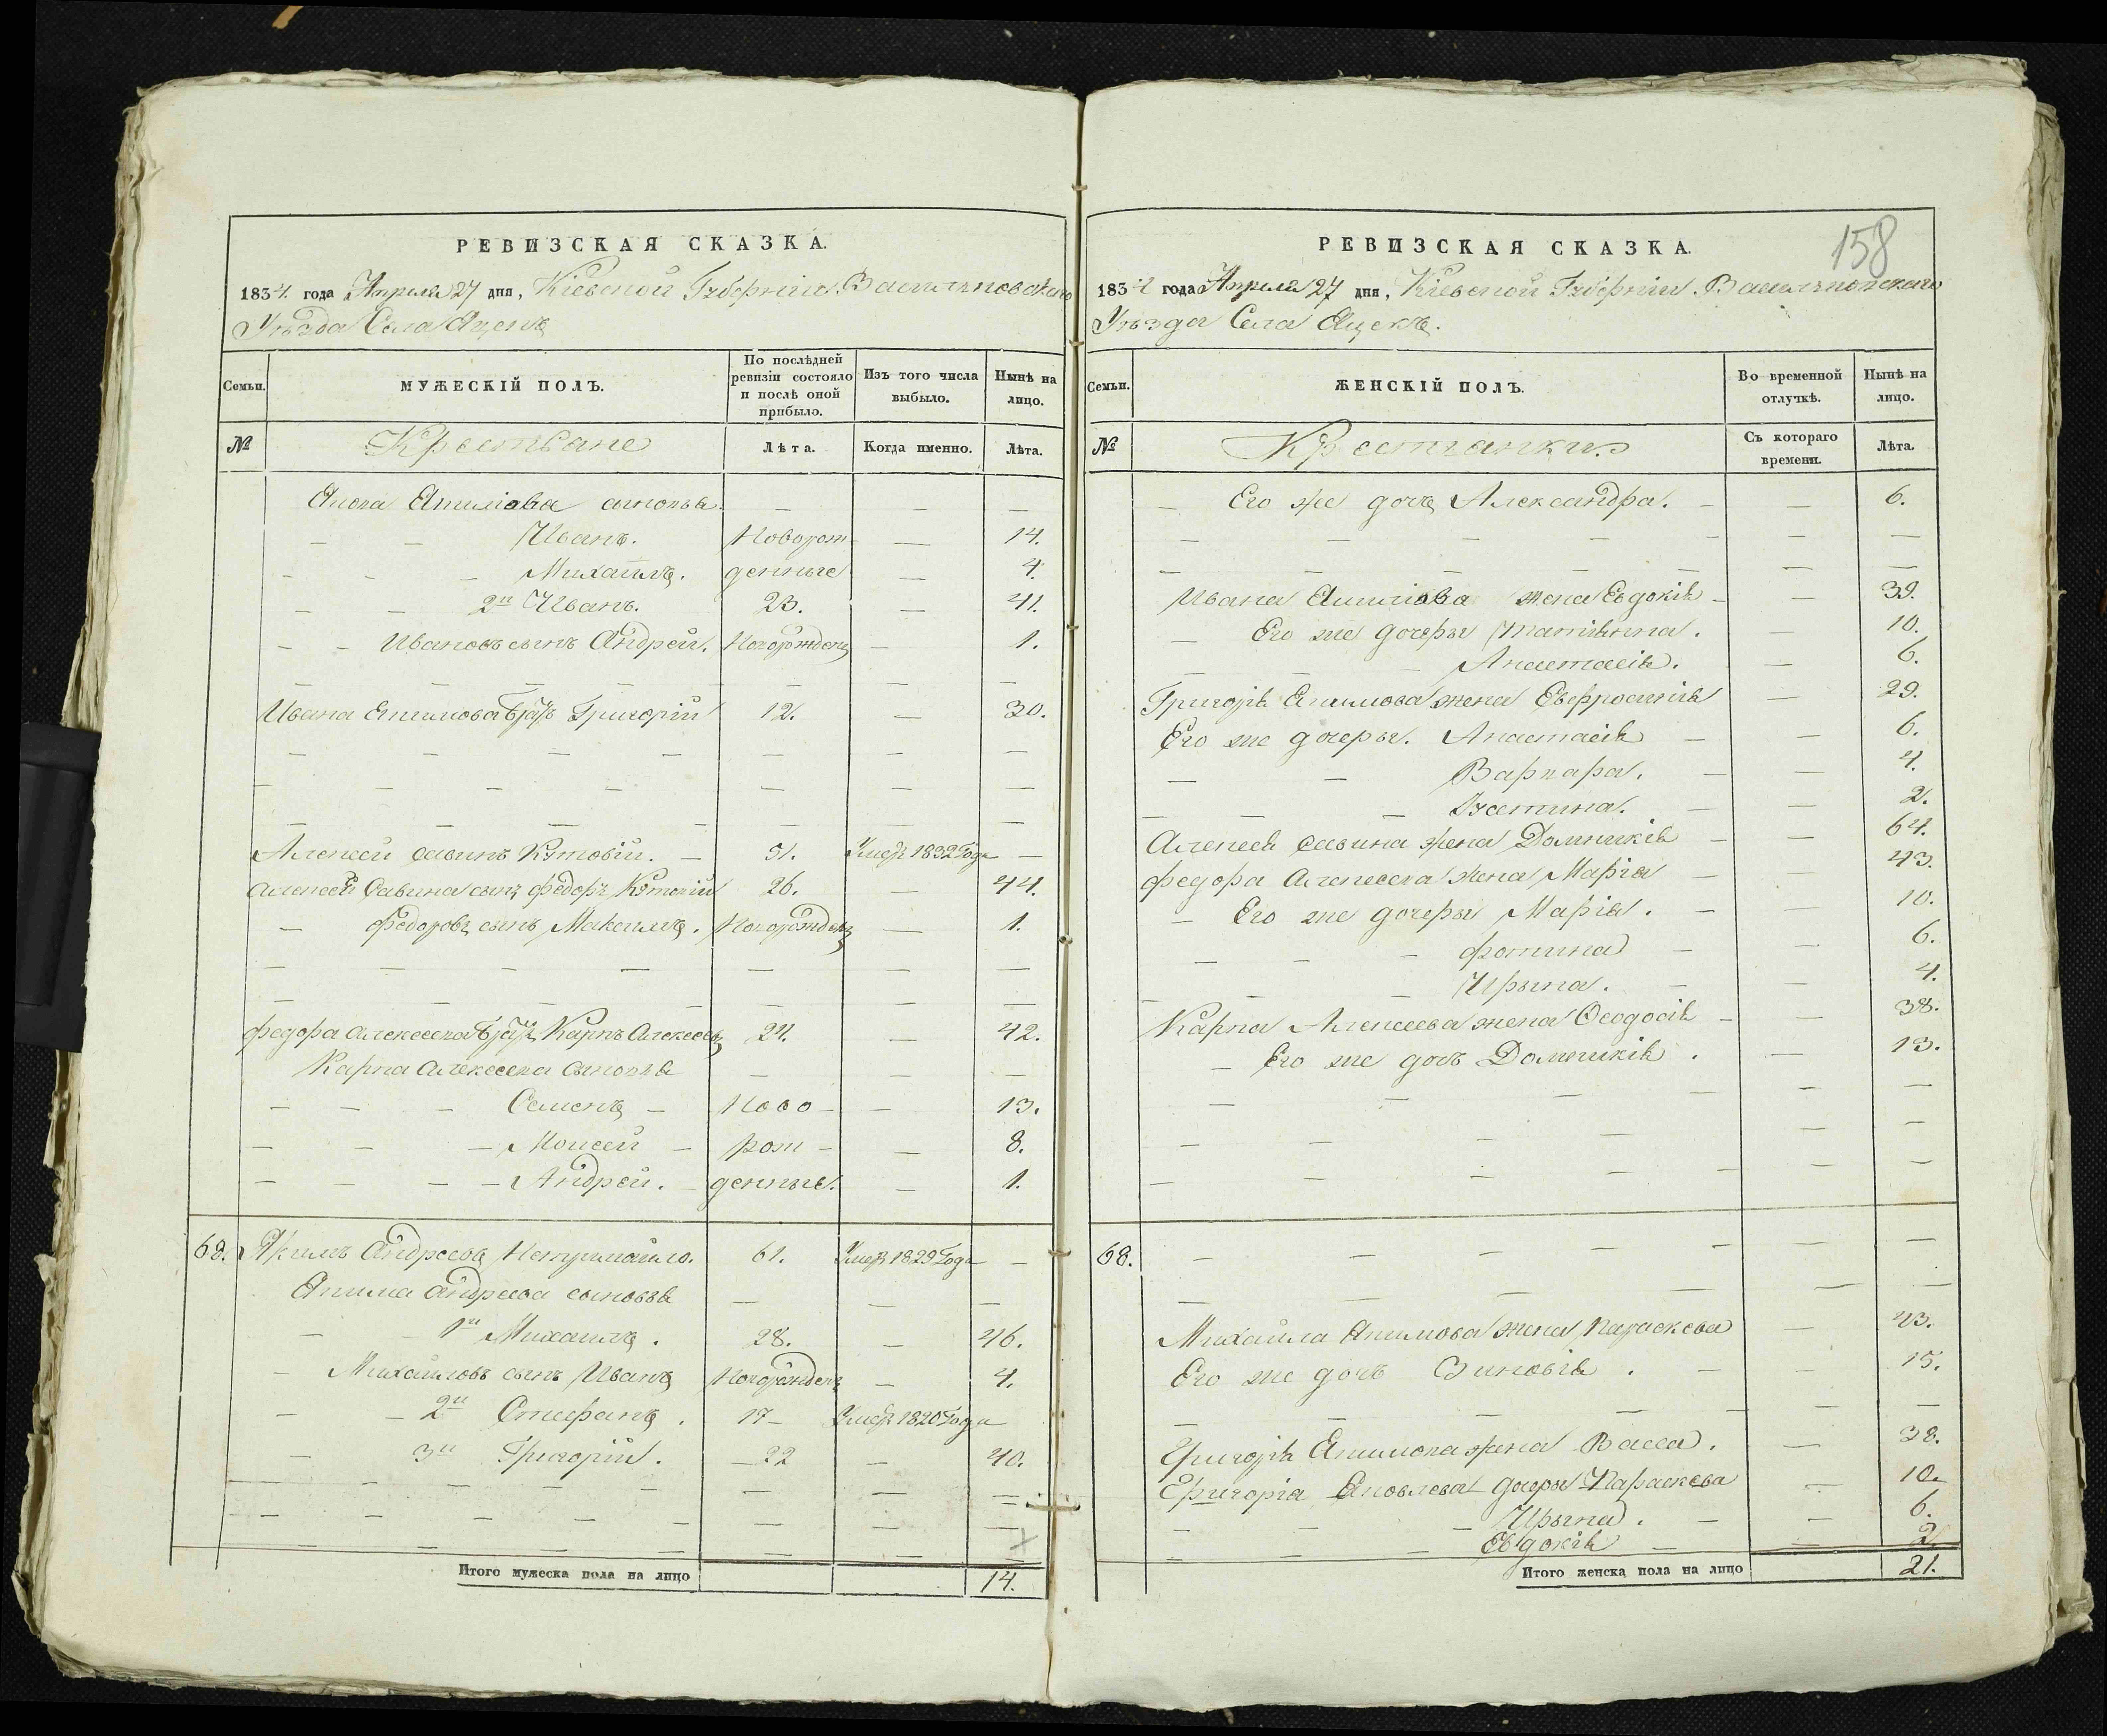 РЕВИЗСКАЯ СКАЗКА.
1834 года Апреля 27 дня, Кіевской Губерніи Васильковскаго
Уѣзда Села Яцекъ
Семьи. МУЖЕСКІЙ ПОЛЪ. По послѣдней ревизіи состояло и послѣ оной прибыло. Изъ того числа выбыло. Нынѣ на лицо.
№ Крестьяне Лѣта. Когда именно. Лѣта.
сыновья. — — —
— — Иванъ. Новорож- — 14.
— — — Михаилъ. денные — 4.
— — 2й Иванъ. 23. — 41.
— — Ивановъ сынъ Андрей. Новорожденъ — 1.
— — — — — — — —
Ивана Якимова братъ Григорій 12. — 30.
— — — — — — —
— — — — — — —
— — — — — — —
Алексей Савинъ — 51. Умеръ 1832 Года —
Алексея Савина сынъ Федоръ 26. — 44.
— Федоровъ сынъ Максимъ. Новорожденъ — 1.
— — — — — — —
— — — — — — —
Федора Алексеева братъ Карпъ Алексеевъ 24. — 42.
Карпа Алексеева сыновья — — —
— — — Семенъ — Ново- — 13.
— — — Моисей — рож- — 8.
— — — — Андрей. — денные. — 1.
68. Якимъ Андреевъ 61. Умеръ 1829 Года —
Якима Андреева сыновья — — —
— — 1й Михаилъ. 28. — 46.
— Михайловъ сынъ Иванъ Новорожденъ — 4.
— — 2й Стефанъ. 17 — Умеръ 1820 Года
— 3й Григорій. — 22 — 40.
— — — — — — — —
— — — — — — — —
— — — — — — — —
Итого мужеска пола на лицо 14.
158
РЕВИЗСКАЯ СКАЗКА.
1834 года Апреля 27 дня, Кіевской Губерніи Васильковскаго
Уѣзда Села Яцекъ.
Семьи. ЖЕНСКІЙ ПОЛЪ. Во временной отлучкѣ. Нынѣ на лицо.
№ Крестьянки Съ котораго времени. Лѣта.
— Его же дочь Александра. — — 6.
— — — — — — —
— — — — — — —
Ивана Якимова жена Евдокія — — 39.
— Его же дочеры Татіянна. — 10.
— — — Анастасія. — 6.
Григорія Якимова жена Евфросинія — 29.
Его же дочеры. Анастасія — — 6.
— — Варвара. — — 4.
— — — Устина. — — 2.
Алексея Савина жена Домникія — — 64.
Федора Алексеева жена Марія — — 43.
— Его же дочеры Марія. — — 10.
— — — Фотина — — 6.
— — — Ирына. — — 4.
Карпа Алексеева жена Феодосія — — 38.
— Его же дочь Домникія. — 13.
— — — — — —
— — — — — —
— — — — — —
68. — — — — — —
— — — — — —
Михайла Якимова жена Параскева — 43.
Его же дочь Зиновія. — — 15.
— — — — — —
Григорія Якимова жена Васса. — 38.
Григорія Яковлева дочеры Параскева — 10.
— — — Ирына. — — 6.
— — — Евдокія — — 2.
Итого женска пола на лицо 21.